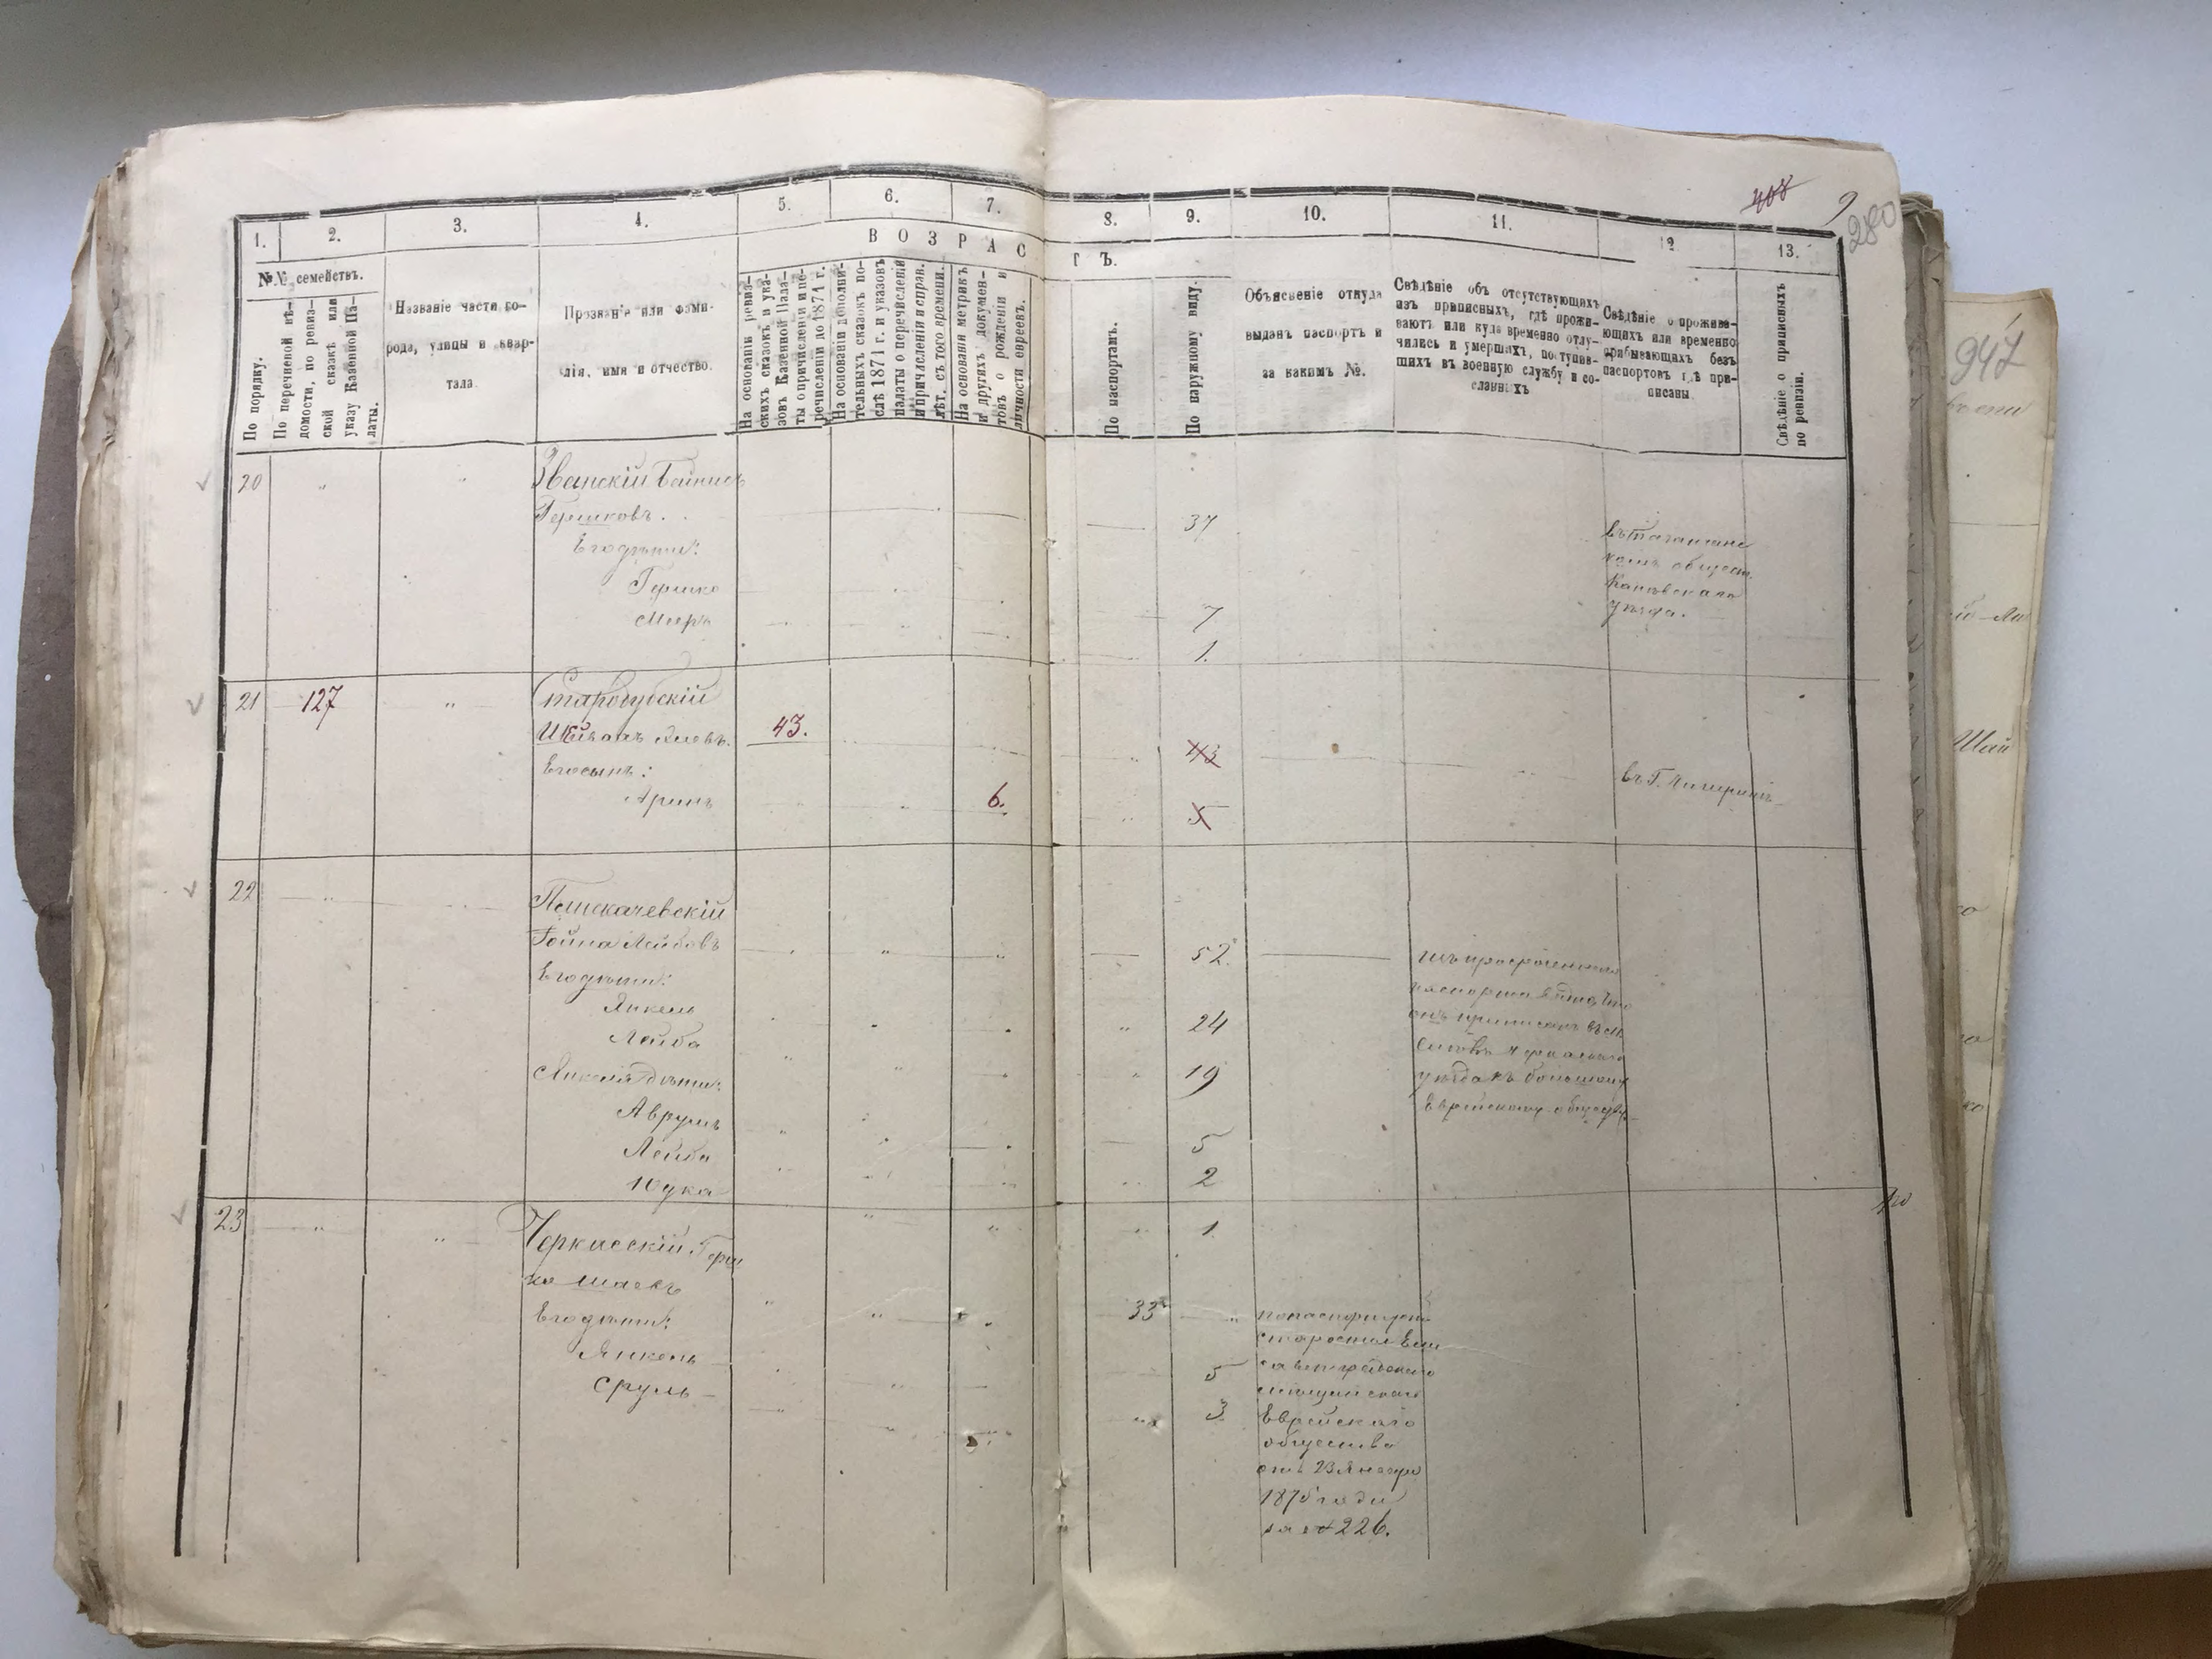 408
9
280
947
1. 2. 3. 4. 5. 6. 7. 8. 9. 10. 11. 12 13.
ВОЗРАСТЪ.
№№ семействъ.
По порядку.
По перечневой вѣ-
домости, по ревиз-
ской сказкѣ или
указу Казенной Па-
латы.
Названіе части го-
рода, улицы и квар-
тала.
Прозваніе или фами-
лія, имя и отчество.
На основаніи ревиз-
скихъ сказокъ и ука-
зовъ Казенной Пала-
ты о причисленіи и пе-
речисленіи до 1871 г.
На основаніи дополни-
тельныхъ сказокъ по-
слѣ 1871 г. и указовъ
палаты о перечисленіи
и причисленіи и справ.
лѣт. съ того времени.
На основаніи метрикъ
и другихъ докумен-
товъ о рожденіи и
личности евреевъ.
По паспортамъ.
По наружному виду.
Объясненіе откуда
выданъ паспортъ и
за какимъ №.
Свѣдѣніе объ отсутствующихъ
изъ приписныхъ, гдѣ прожи-
ваютъ или куда временно отлу-
чились и умершихъ, поступив-
шихъ въ военную службу и со-
сланныхъ
Свѣдѣніе о прожива-
ющихъ или временно
прибывающихъ безъ
паспортовъ гдѣ при-
писаны.
Свѣдѣніе о приписныхъ
по ревизіи.
20
Званскій
Гершковъ.
37
Его дѣти:
Гершко
7
Мееръ
1.
обществ.
Каневскаго
уѣзда.
21 127
Стародубскій
43.
43
Его сынъ:
Аронъ
6.
5
въ Г. Чигиринѣ
22
Лейбовъ
52
Его дѣти:
Янкель
24
Лейба
19
Янкеля дѣти:
Аврумъ
5
Лейба
2
Юдка
1
изъ просроченнаго
паспорта видно что
онъ приписанъ въ м.
уѣзда къ
Еврейскому обществу
23
Черкасскій Герш
ко
33
Его дѣти:
Янкель
5
Сруль
3
по паспорту
старостою Ели
саветградскаго
мѣщанскаго
Еврейскаго
общества
отъ 23 Января
1875 года
за № 226.